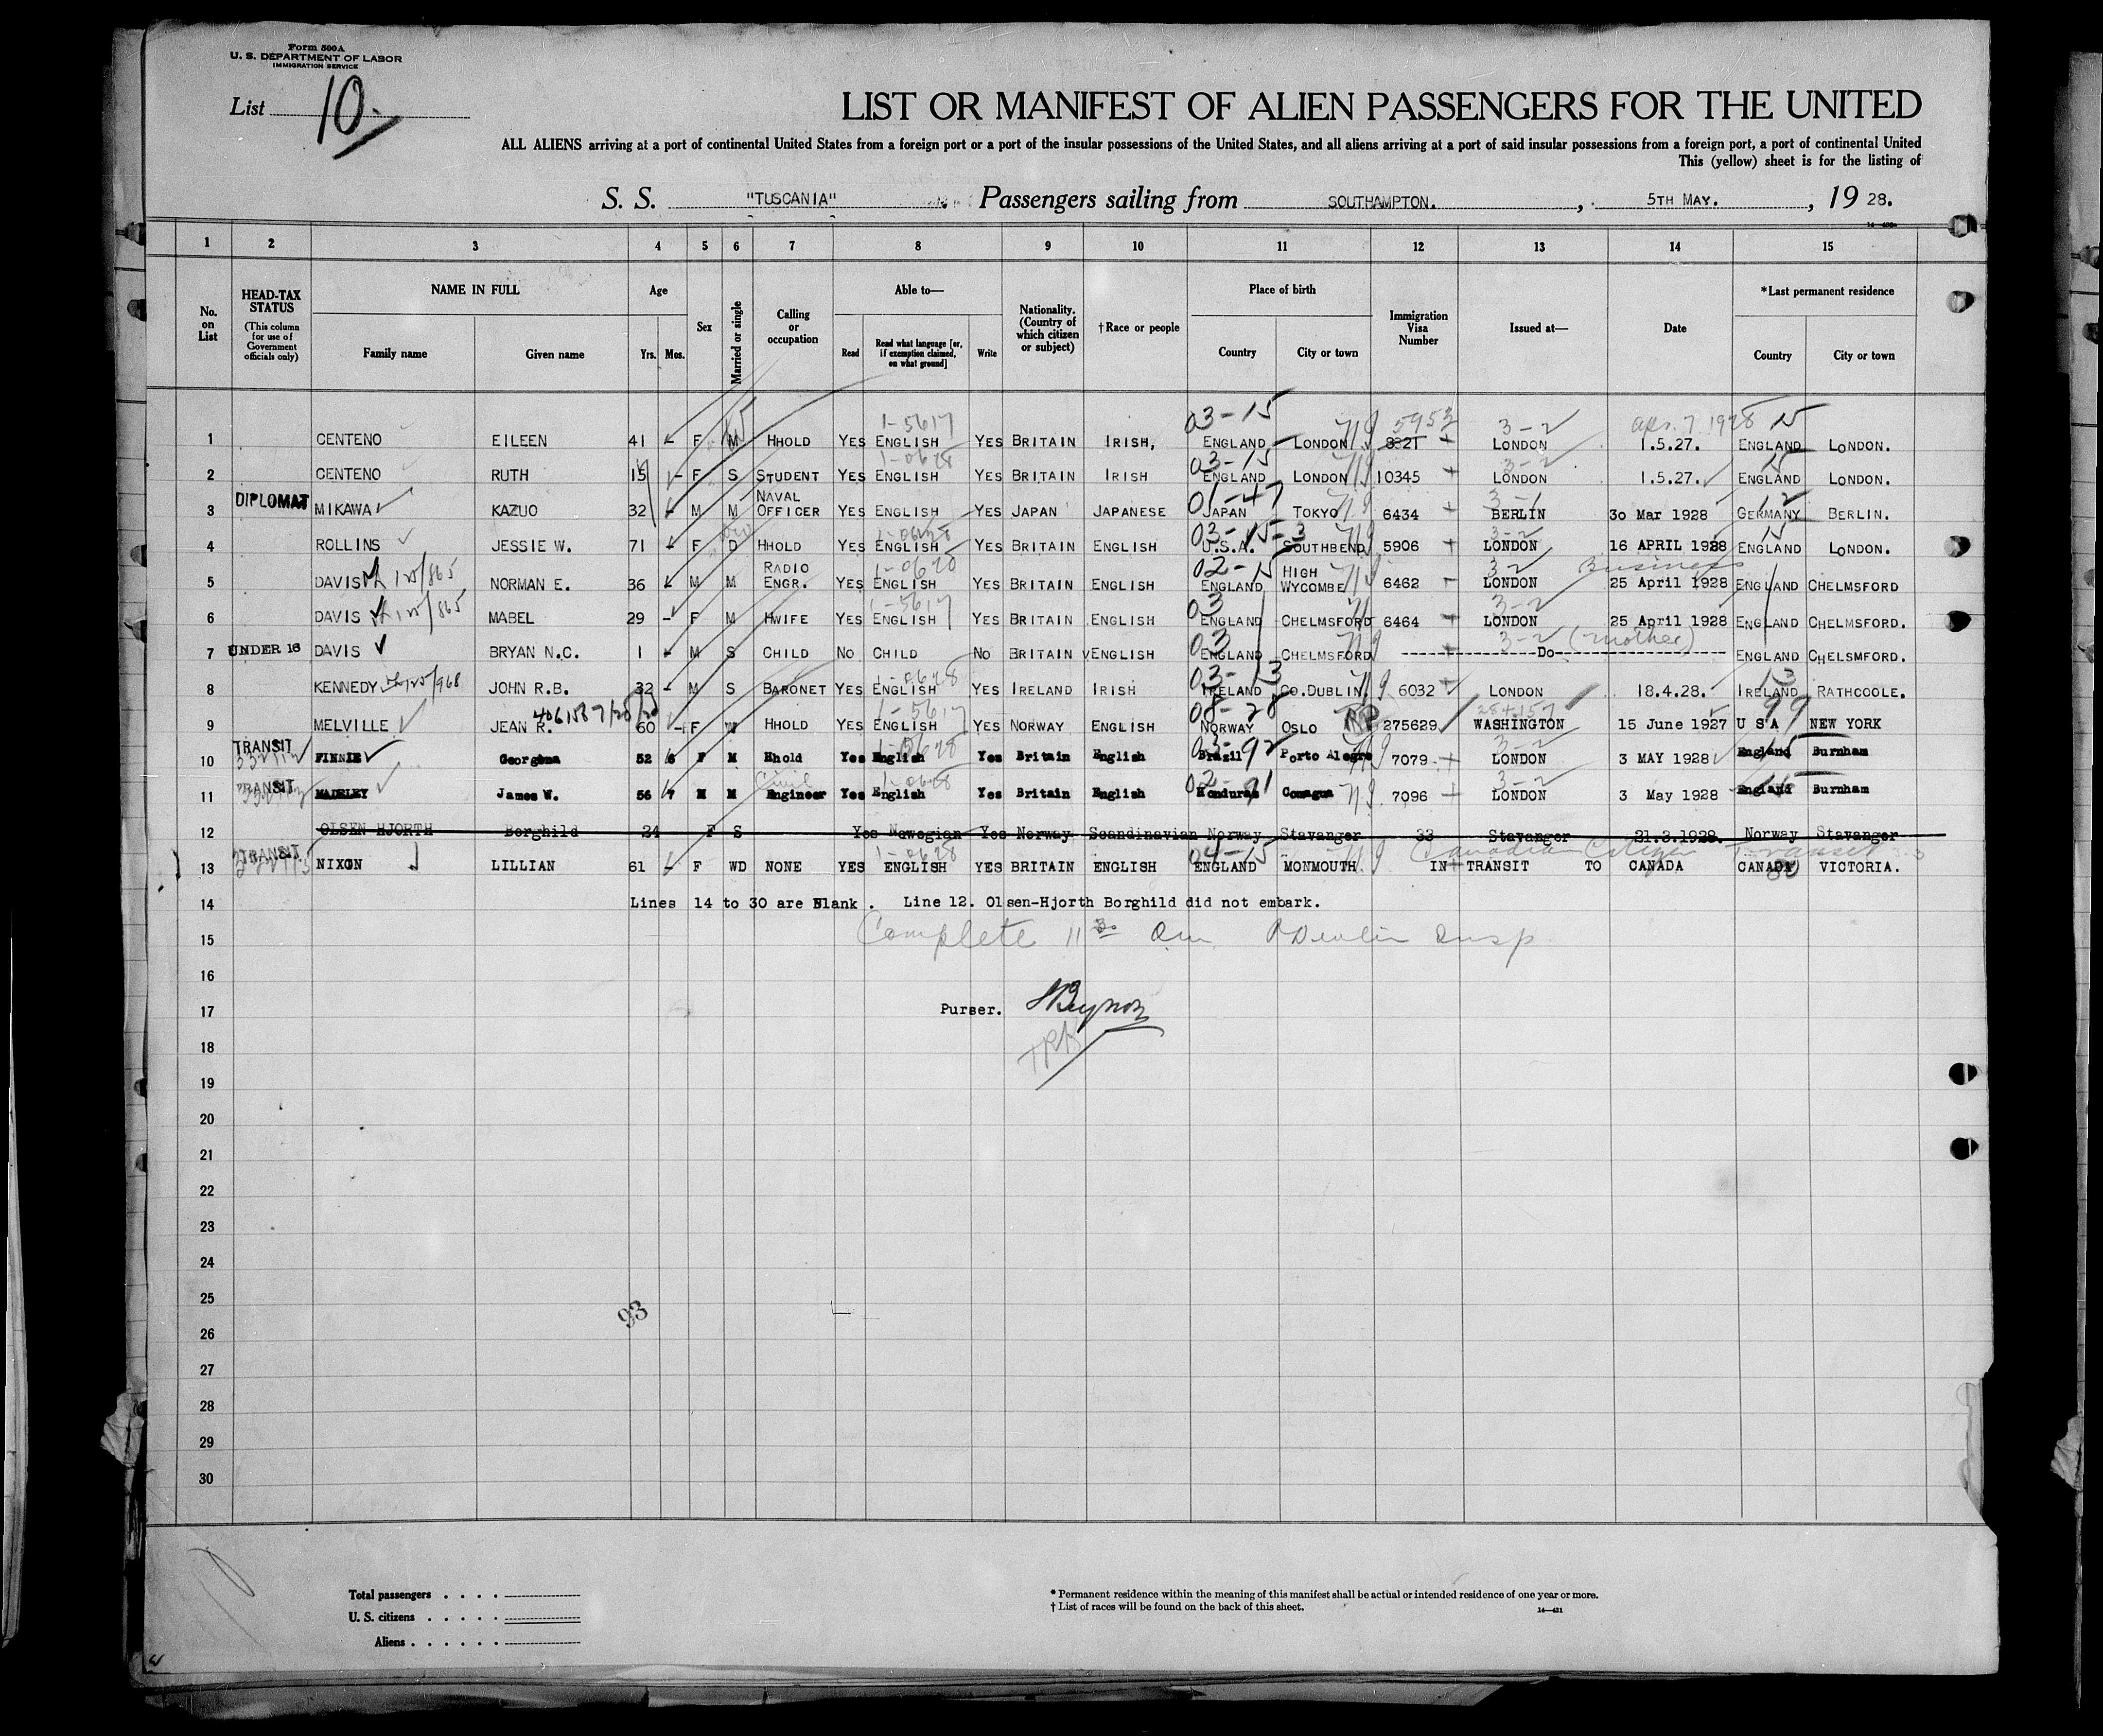 Form 500A
U. S. DEPARTMENT OF LABOR
IMMIGRATION SERVICE
List 10.
LIST OR MANIFEST OF ALIEN PASSENGERS FOR THE UNITED
ALL ALIENS arriving at a port of continental United States from a foreign port or a port of the insular possessions of the United States, and all aliens arriving at a port of said insular possessions from a foreign port, a port of continental United
This (yellow) sheet is for the listing of
S. S. "TUSCANIA" Passengers sailing from SOUTHAMPTON. , 5TH MAY. , 19 28.
1 2 3 4 5 6 7 8 9 10 11 12 13 14 15
No. on List
HEAD-TAX STATUS (This column for use of Government officials only)
NAME IN FULL Family name Given name
Age Yrs. Mos.
Sex
Married or single
Calling or occupation
Able to— Read Read what language [or, if exemption claimed, on what ground] Write
Nationality. (Country of which citizen or subject)
†Race or people
Place of birth Country City or town
Immigration Visa Number
Issued at—
Date
*Last permanent residence Country City or town
03-15 1-5617 5953 3-2 Apr. 7 1928 15
1 CENTENO EILEEN 41 - F M HHOLD YES ENGLISH YES BRITAIN IRISH, ENGLAND LONDON 8321 LONDON 1.5.27. ENGLAND LONDON.
1-0628 03-15 3-2 15
2 CENTENO RUTH 15 - F S STUDENT YES ENGLISH YES BRITAIN IRISH ENGLAND LONDON 10345 LONDON 1.5.27. ENGLAND LONDON.
01-47 3-1 12
3 DIPLOMAT MIKAWA KAZUO 32 - M M NAVAL OFFICER YES ENGLISH YES JAPAN JAPANESE JAPAN TOKYO 6434 BERLIN 30 MAR 1928 GERMANY BERLIN.
1-0628 03-15-3 3-2 15
4 ROLLINS JESSIE W. 71 - F D HHOLD YES ENGLISH YES BRITAIN ENGLISH U.S.A. SOUTHBEND 5906 LONDON 16 APRIL 1928 ENGLAND LONDON.
1-0620 02-15 3-2 Business
5 DAVIS 125/865 NORMAN E. 36 - M M RADIO ENGR. YES ENGLISH YES BRITAIN ENGLISH ENGLAND HIGH WYCOMBE 6462 LONDON 25 April 1928 ENGLAND CHELMSFORD
1-5617 03 3-2
6 DAVIS 125/865 MABEL 29 - F M HWIFE YES ENGLISH YES BRITAIN ENGLISH ENGLAND CHELMSFORD 6464 LONDON 25 April 1928 ENGLAND CHELMSFORD.
03 3-2 (mother)
7 UNDER 16 DAVIS BRYAN N.C. 1 - M S CHILD NO CHILD NO BRITAIN ENGLISH ENGLAND CHELMSFORD ---Do--- ENGLAND CHELSMFORD.
1-0628 03-13 13
8 KENNEDY 125/968 JOHN R.B. 32 - M S BARONET YES ENGLISH YES IRELAND IRISH IRELAND CO.DUBLIN. 6032 LONDON 18.4.28. IRELAND RATHCOOLE.
1-5617 08-28 284157 99
9 MELVILLE JEAN R. 60 - F W HHOLD YES ENGLISH YES NORWAY ENGLISH NORWAY OSLO 275629 WASHINGTON 15 June 1927 U S A NEW YORK
3-2 15
10 TRANSIT FINNIE Georgena 52 6 F M Hhold Yes English Yes Britain English Brazil Porto Alegre 7079 LONDON 3 MAY 1928 England Burnham
Civil 1-0628 3-2
11 TRANSIT MADELEY James W. 56 7 M M Engineer Yes English Yes Britain English Honduras Comagua 7096 LONDON 3 May 1928 England Burnham
12 OLSEN HJORTH Borghild 24 F S Yes Nowegian Yes Norway Scandinavian Norway Stavanger 33 Stavanger 21.3.1928 Norway Stavanger
1-0628 04-15 Canadian Citizen Transit
13 TRANSIT NIXON LILLIAN 61 - F WD NONE YES ENGLISH YES BRITAIN ENGLISH ENGLAND MONMOUTH IN TRANSIT TO CANADA CANADA VICTORIA.
14 Lines 14 to 30 are Blank . Line 12. Olsen-Hjorth Borghild did not embark.
15 Complete
16
17 Purser.
18
19
20
21
22
23
24
25
93
26
27
28
29
30
Total passengers . . . .
U. S. citizens . . . . .
Aliens . . . . . .
* Permanent residence within the meaning of this manifest shall be actual or intended residence of one year or more.
† List of races will be found on the back of this sheet.